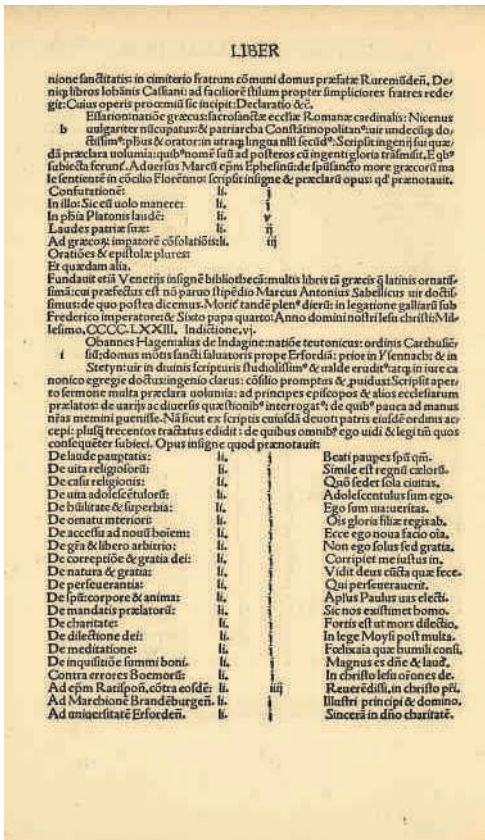 LIBER
nione sanctitatis: in cimiterio fratrum cōmuni domus præfatæ Ruremūdeñ. De/
niq; libros Iohānis Cassiani: ad faciliorē stilum propter simpliciores fratres rede/
git: Cuius operis proœmiū sic incipit: Declaratio &c̄.
Essarion: natiōe græcus: sacrosanctæ ecclīæ Romanæ cardinalis: Nicenus
b uulgariter nūcupatus: & patriarcha Constātinopolitanꝰ: uir undecūq; do/
ctissimꝰ: ph̄us & orator: in utraq; lingua nlli secūdꝰ: Scripsit ingenij sui quæ/
dā præclara uolumia: quibꝰ nomē suū ad posteros cū ingenti gloria trāsmisit. E qbꝰ
subiecta ferunt̄. Aduersus Marcū ep̄m Ephesinū: de sp̄usancto more græcorū ma
le sentientē in cōcilio Florētino: scripsit insigne & præclarū opus: qd̓ prænotauit.
Confutationē: li. j
In illo: Sic eū uolo manere: li. j
In ph̄ia Platonis laudē: li. v
Laudes patriæ suæ: li. ij
Ad græcoꝝ impatorē cōsolatiōis: li. iij
Oratiōes & epistolæ plures:
Et quædam alia.
Fundauit etiā Venetijs insignē bibliothecā: multis libris tā græcis q̄ latinis ornatis/
simā: cui præfectus est nō paruo stipēdio Marcus Antonius Sabellicus uir doctis/
simus: de quo postea dicemus. Morit̄ tandē plenꝰ dierū: in legatione galliarū sub
Frederico imperatore: & Sixto papa quarto: Anno domini nostri Iesu christi: Mil/
lesimo. CCCC. LXXIII. Indictione. vj.
Ohannes Hagen: alias de Indagine: natiōe teutonicus: ordinis Carthusiē/
i siū: domus mōtis sancti saluatoris prope Erfordiā: prior in Ysennach: & in
Stetyn: uir in diuinis scripturis studiosissimꝰ & ualde eruditꝰ: atq; in iure ca
nonico egregie doctus: ingenio clarus: cōsilio promptus & ꝓuidus: Scripsit aper/
to sermone multa præclara uolumia: ad principes episcopos & alios ecclesiarum
prælatos: de uarijs ac diuersis quæstionibꝰ interrogatꝰ: de quibꝰ pauca ad manus
nr̄as memini peruenisse. Nā sicut ex scriptis cuiusdā deuoti patris eiusdē ordinis ac/
cepi: plusq̄ trecentos tractatus edidit: de quibus omnibꝰ ego uidi & legi tm̄ quos
consequēter subieci. Opus insigne quod prænotauit:
De laude paupertatis: li. j Beati paupes spū qm̄.
De uita religiosorū: li. j Simile est regnū cælorū.
De casu religionis: li. j Quō sedet sola ciuitas.
De uita adolescētulorū: li. j Adolescentulus sum ego.
De hūilitate & superbia: li. j Ego sum uia: ueritas.
De ornatu interiori: li. j Ōis gloria filiæ regis ab.
De accessu ad nouū hoīem: li. j Ecce ego noua facio oīa.
De gr̄a & libero arbitrio: li. j Non ego solus sed gratia.
De correptiōe & gratia dei: li. j Corripiet me iustus in.
De natura & gratia: li. j Vidit deus cūcta quæ fece.
De perseuerantia: li. j Qui perseuerauerit.
De spū: corpore & anima: li. j Apl̄us Paulus uas electi.
De mandatis prælatorū: li. j Sic nos existimet homo.
De charitate: li. j Fortis est ut mors dilectio.
De dilectione dei: li. j In lege Moysi post multa.
De meditatione: li. j Fœlix aīa quæ humili consi.
De inquisitiōe summi boni. li. j Magnus es dn̄e & laud̓.
Contra errores Boemorū: li. j In christo Iesu or̄ones de.
Ad ep̄m Ratispoñ. cōtra eosdē: li. iiij Reuerēdissi. in christo pr̄i.
Ad Marchionē Brandēburgeñ. li. j Illustri principi & domino.
Ad uniuersitatē Erfordeñ. li. j Sincerā in dn̄o charitatē.